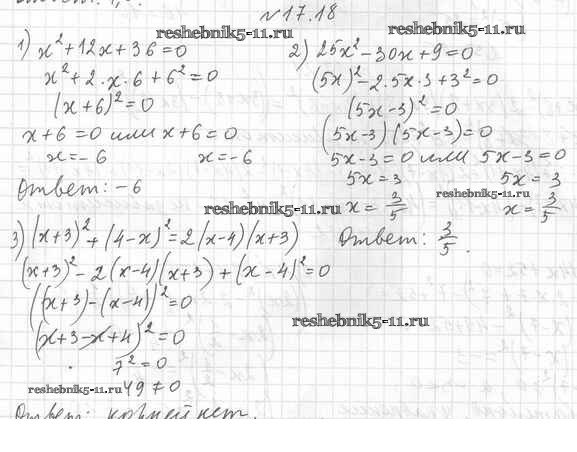 №17.18
1) x² + 12x + 36 = 0
x² + 2·x·6 + 6² = 0
(x+6)² = 0
x+6 = 0 или x+6 = 0
x = -6 x = -6
Ответ: -6
2) 25x² - 30x + 9 = 0
(5x)² - 2·5x·3 + 3² = 0
(5x-3)² = 0
(5x-3)(5x-3) = 0
5x-3 = 0 или 5x-3 = 0
5x = 3 5x = 3
x = 3/5 x = 3/5
Ответ: 3/5.
3) (x+3)² + (4-x)² = 2(x-4)(x+3)
(x+3)² - 2(x-4)(x+3) + (x-4)² = 0
((x+3)-(x-4))² = 0
(x+3-x+4)² = 0
7² = 0
49 ≠ 0
Ответ: корней нет.
reshebnik5-11.ru
reshebnik5-11.ru
reshebnik5-11.ru
reshebnik5-11.ru
reshebnik5-11.ru
reshebnik5-11.ru